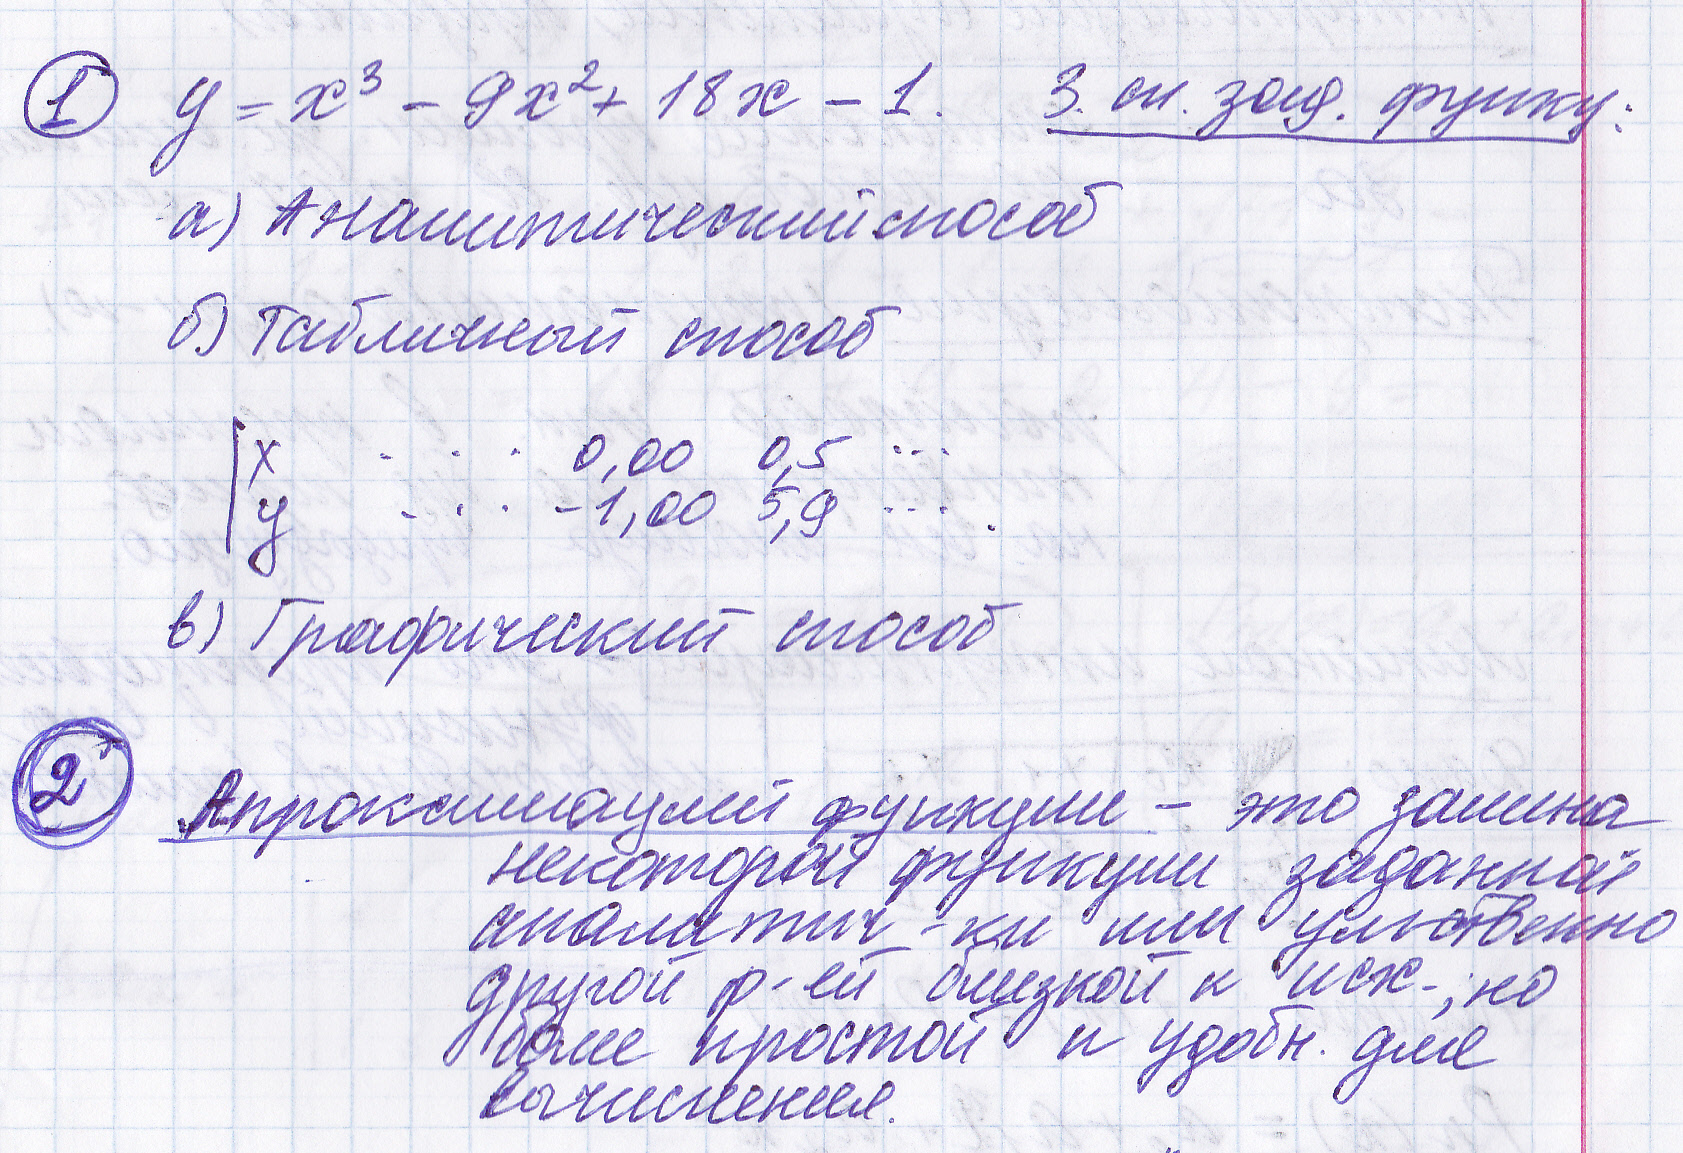 1 y = x³ - 9x² + 18x - 1. 3 сп. зад. функц:
а) Аналитический способ
б) Табличный способ
x . . . 0,00 0,5 ...
y . . . -1,00 5,9 ... .
в) Графический способ
2 Апроксимацией функции - это замена
некоторой функции заданной
аналитич-ки или умственно
другой ф-ей близкой к исх-, но
более простой и удобн. для
вычисления.